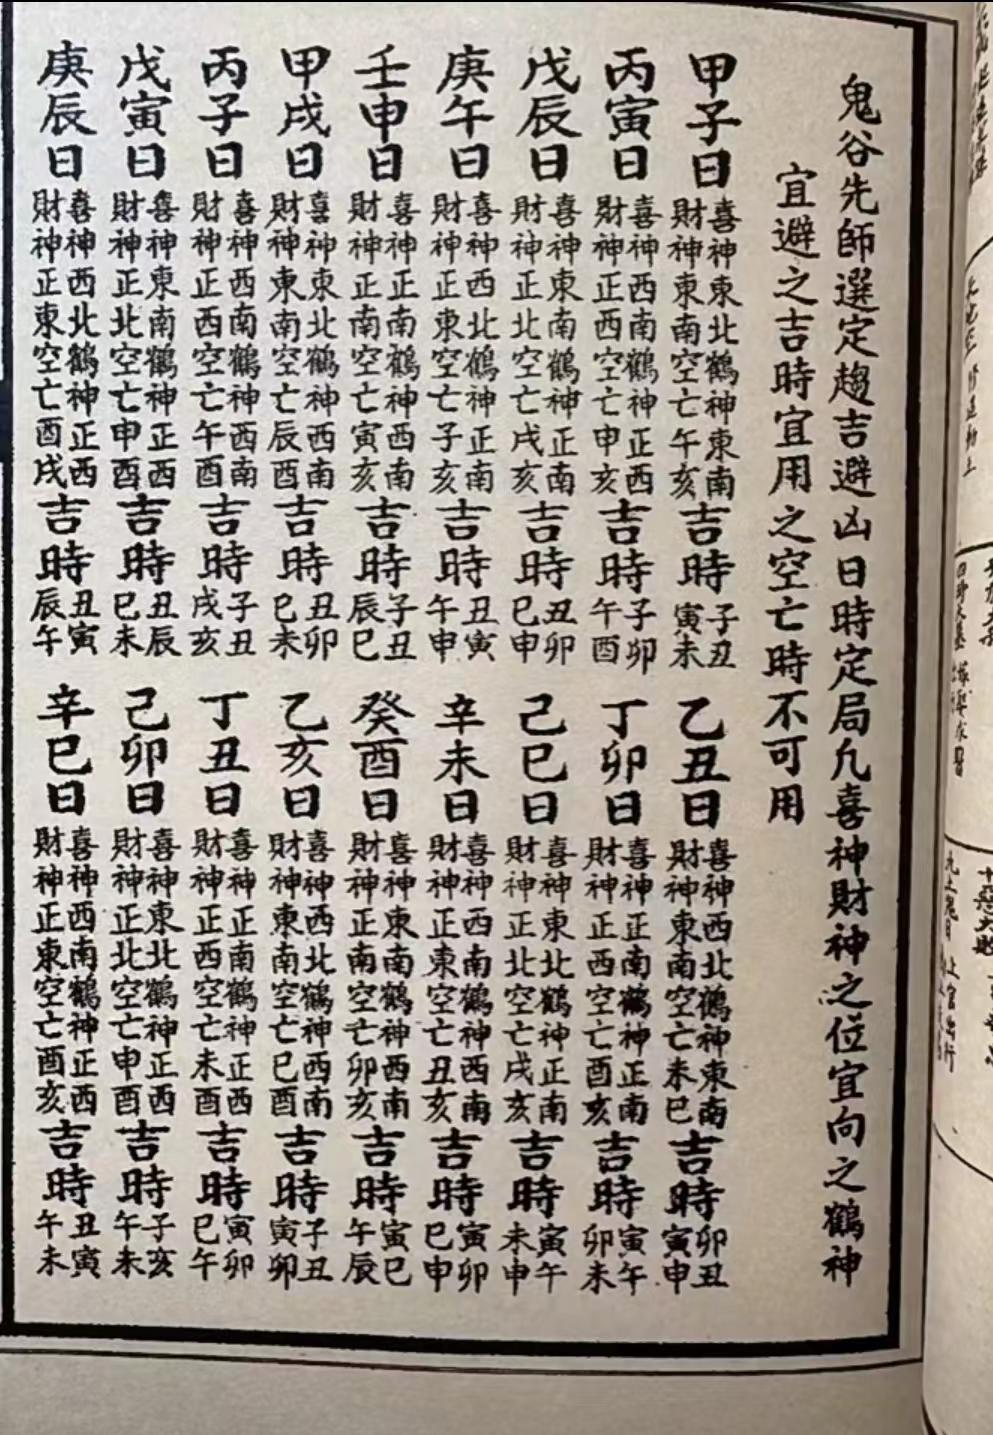 鬼谷先師選定趨吉避凶日時定局凡喜神財神之位宜向之鶴神
宜避之吉時宜用之空亡時不可用
甲子日
喜神東北鶴神東南
財神東南空亡午亥
吉時
子丑
寅未
乙丑日
喜神西北鶴神東南
財神東南空亡未巳
吉時
卯丑
寅申
丙寅日
喜神西南鶴神正西
財神正西空亡申亥
吉時
子卯
午酉
丁卯日
喜神正南鶴神正南
財神正西空亡酉亥
吉時
寅午
卯未
戊辰日
喜神東南鶴神正南
財神正北空亡戌亥
吉時
丑卯
巳申
己巳日
喜神東北鶴神正南
財神正北空亡戌亥
吉時
寅午
未申
庚午日
喜神西北鶴神正南
財神正東空亡子亥
吉時
丑寅
午申
辛未日
喜神西南鶴神西南
財神正東空亡丑亥
吉時
寅卯
巳申
壬申日
喜神正南鶴神西南
財神正南空亡寅亥
吉時
子丑
辰巳
癸酉日
喜神東南鶴神西南
財神正南空亡卯亥
吉時
寅巳
午辰
甲戌日
喜神東北鶴神西南
財神東南空亡辰酉
吉時
丑卯
巳未
乙亥日
喜神西北鶴神西南
財神東南空亡巳酉
吉時
子丑
寅卯
丙子日
喜神西南鶴神西南
財神正西空亡午酉
吉時
子丑
戌亥
丁丑日
喜神正南鶴神正西
財神正西空亡未酉
吉時
寅卯
巳午
戊寅日
喜神東南鶴神正西
財神正北空亡申酉
吉時
丑辰
巳未
己卯日
喜神東北鶴神正西
財神正北空亡申酉
吉時
子亥
午未
庚辰日
喜神西北鶴神正西
財神正東空亡酉戌
吉時
丑寅
辰午
辛巳日
喜神西南鶴神正西
財神正東空亡酉亥
吉時
丑寅
午未